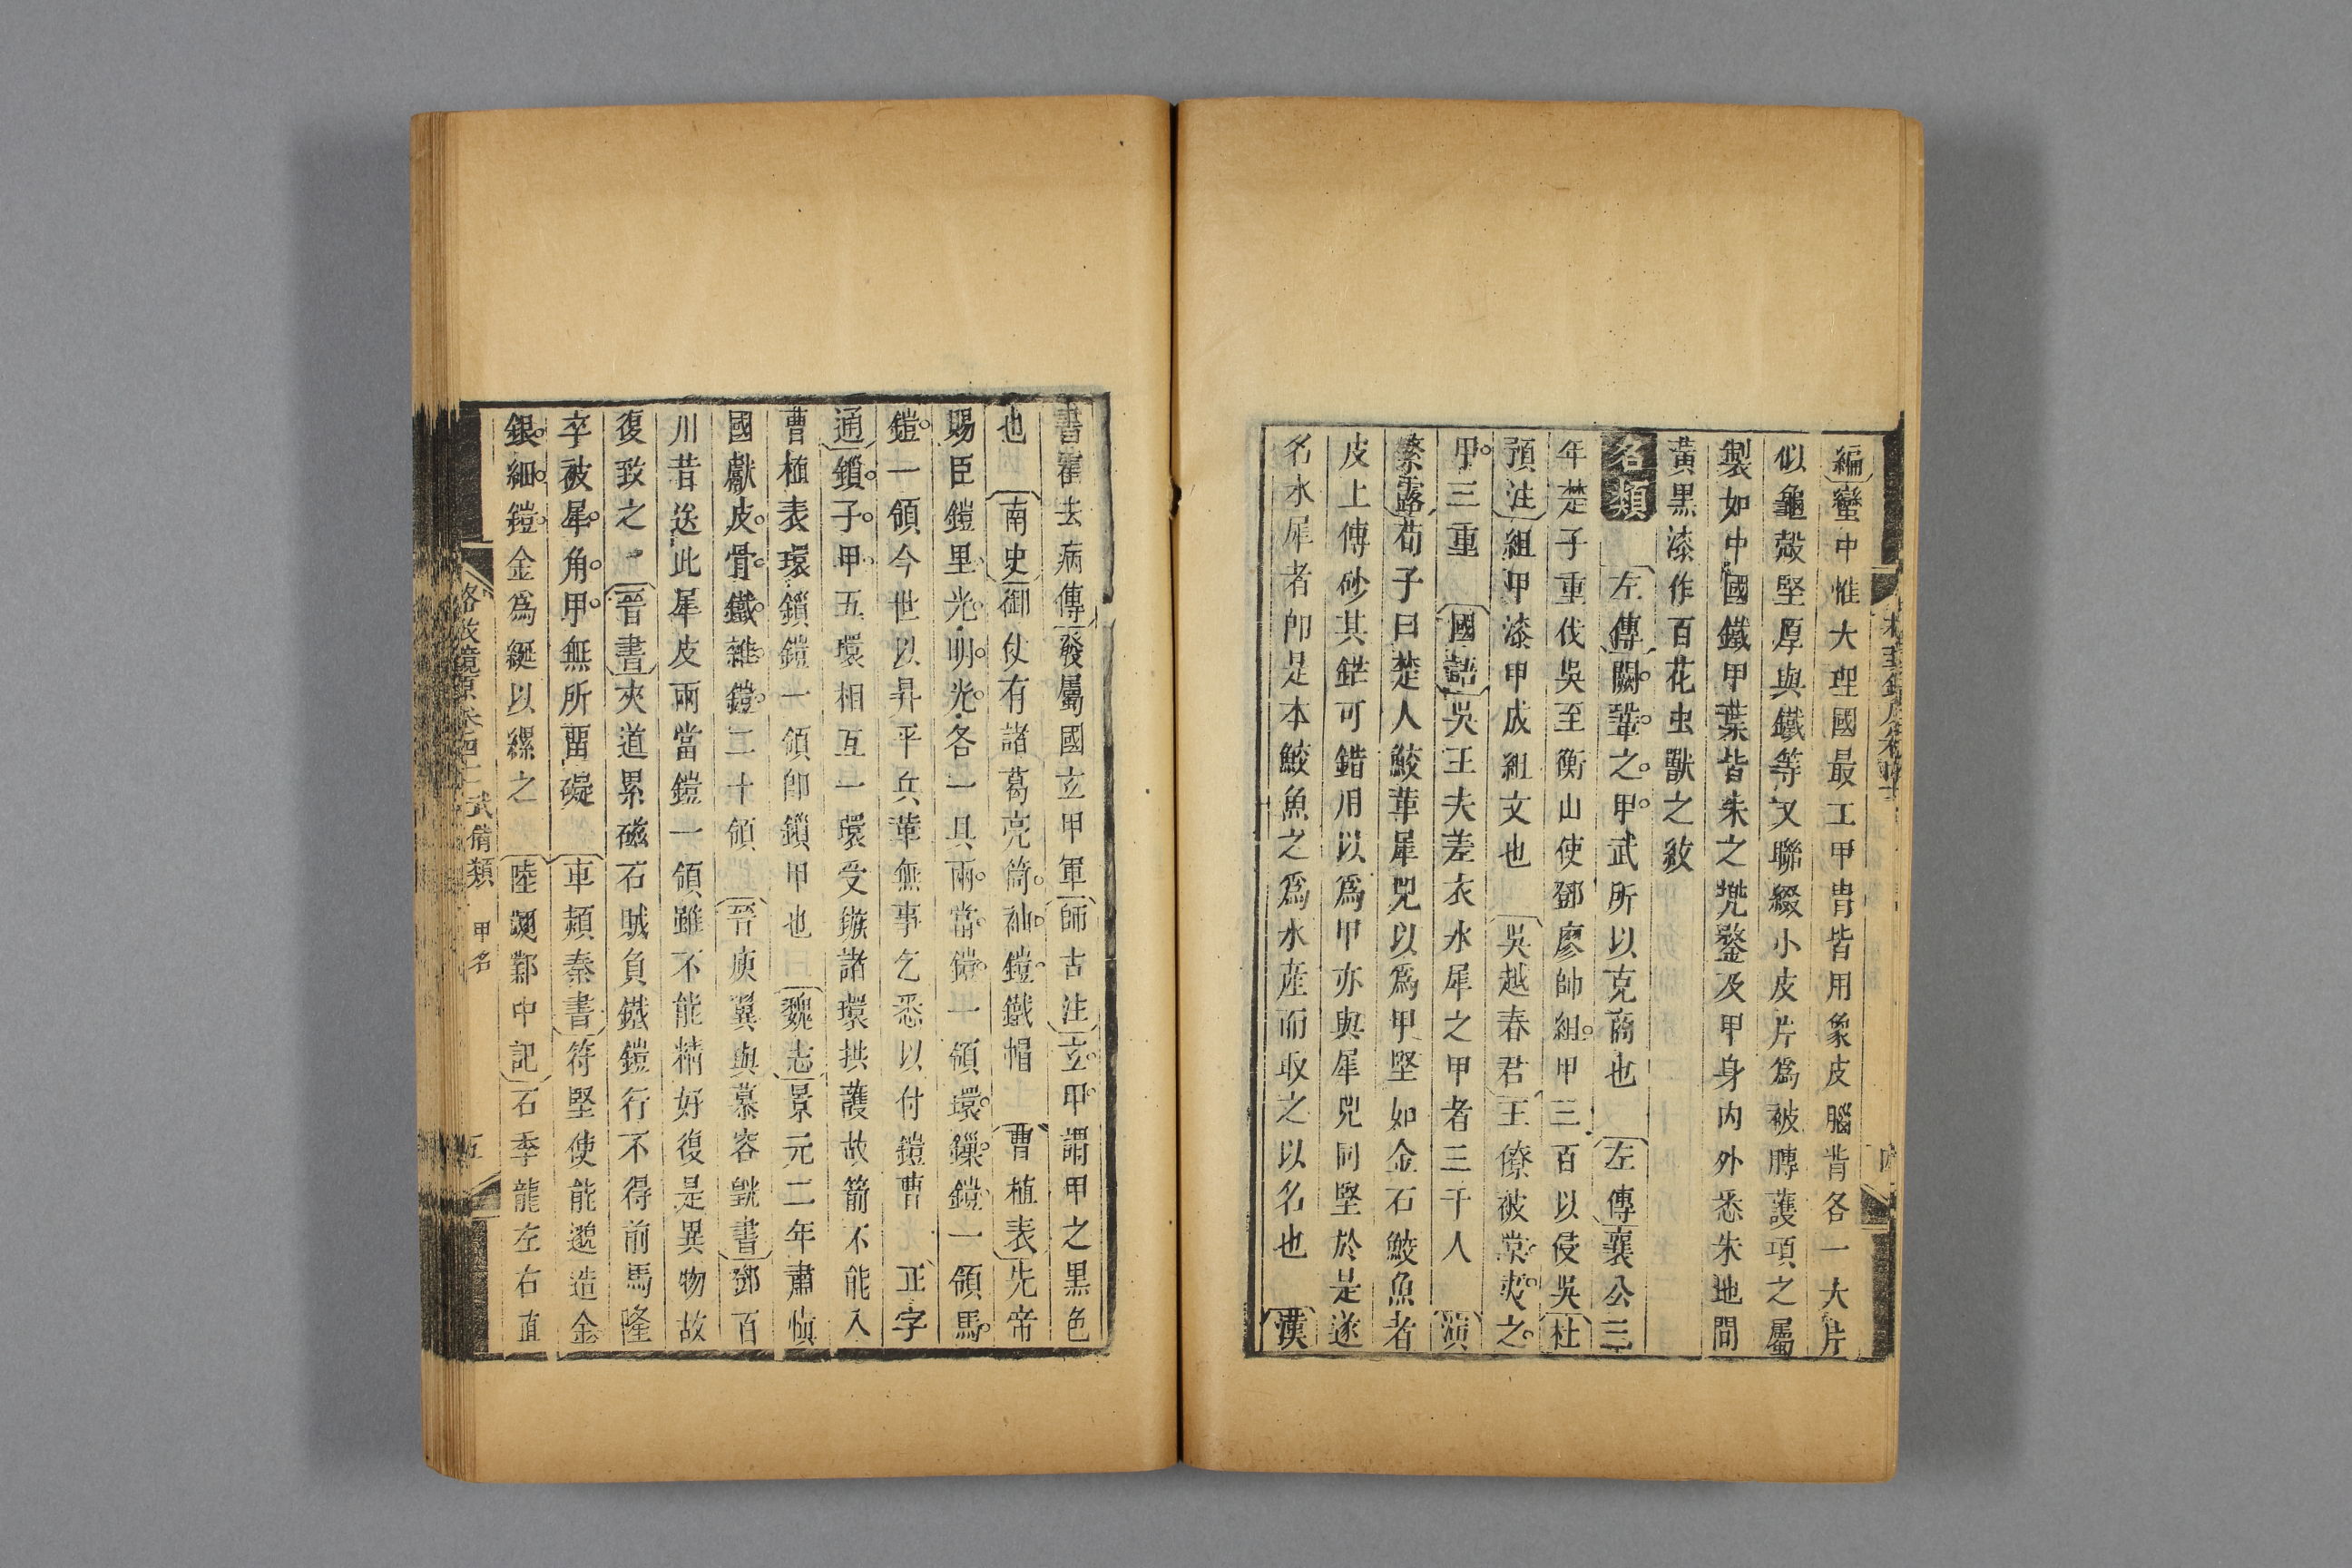 編蠻中惟大理國最工甲胄皆用象皮腦背各一大片
似龜殼堅厚與鐵等又聯綴小皮片爲被膊護項之屬
製如中國鐵甲葉皆朱之兠鍪及甲身內外悉朱地間
黃黑漆作百花虫獸之紋
名類 左傳闕鞏之甲武所以克商也 左傳襄公三
年楚子重伐吳至衡山使鄧廖帥組甲三百以侵吳杜
預注組甲漆甲成組文也 吳越春君王僚被棠夷之
甲三重 國語吳王夫差衣水犀之甲者三千人 演
繁露荀子曰楚人鮫革犀兕以爲甲堅如金石鮫魚者
皮上傳砂其錯可錯用以爲甲亦與犀兕同堅於是遂
名水犀者卽是本鮫魚之爲水産而取之以名也 漢
書霍去病傳發屬國玄甲軍師古注玄甲謂甲之黑色
也 南史御仗有諸葛亮筒袖鎧鐵帽 曹植表先帝
賜臣鎧里光明光各一具兩當鎧一領環鏁鎧一領馬
鎧一領今世以昇平兵革無事乞悉以付鎧曹 正字
通鎖子甲五環相互一環受鏃諸環拱護故箭不能入
曹植表環鎖鎧一領卽鎖甲也 魏志景元二年肅愼
國獻皮骨鐵雜鎧二十領 晉庾翼與慕容皝書鄧百
川昔送此犀皮兩當鎧一領雖不能精好復是異物故
復致之 晉書夾道累磁石賊負鐵鎧行不得前馬隆
卒被犀角甲無所畱礙 車頻秦書符堅使能邈造金
銀細鎧金爲綖以縲之 陸翽鄴中記石季龍左右直
格致鏡原卷四十二 武備類 甲名 五